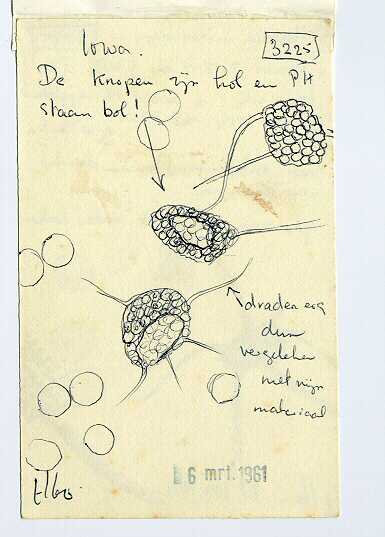 Iowa.
3225
De knopen zijn hol en PH
staan bol!
draden erg
dun
vergeleken
met mijn
materiaal
6 mrt. 1961